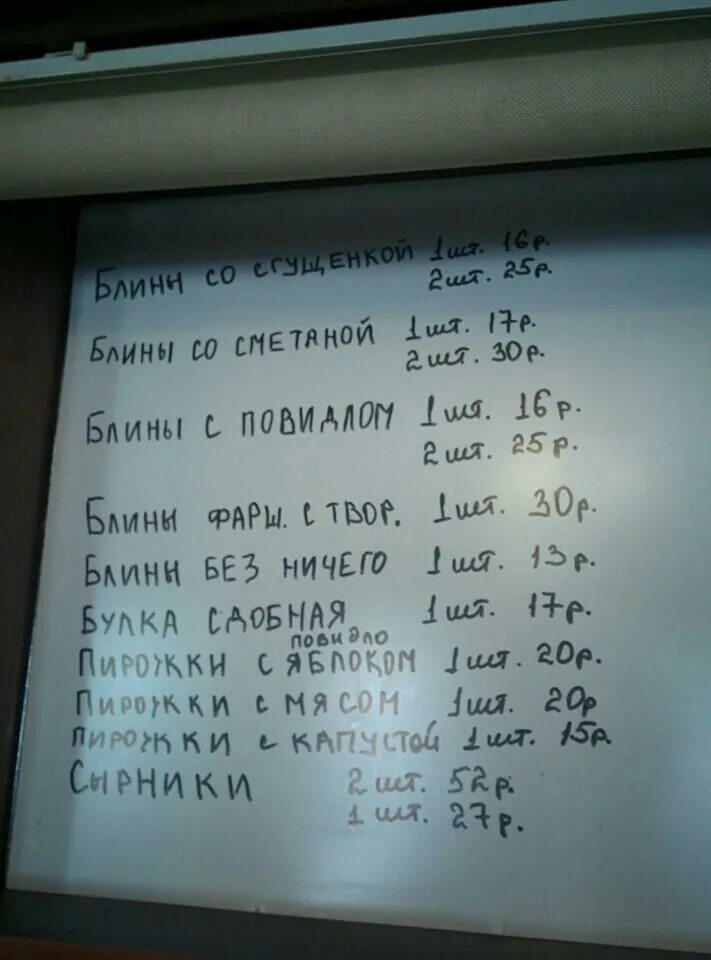 Блины со сгущенкой 1шт. 16р.
2шт. 25р.
Блины со сметаной 1шт. 17р.
2шт. 30р.
Блины с повидлом 1шт. 16р.
2шт. 25р.
Блины фарш. с твор. 1шт. 30р.
Блины без ничего 1шт. 13р.
Булка сдобная 1шт. 17р.
повидло
Пирожки с яблоком 1шт. 20р.
Пирожки с мясом 1шт. 20р
Пирожки с капустой 1шт. 15р.
Сырники 2шт. 52р.
1шт. 27р.